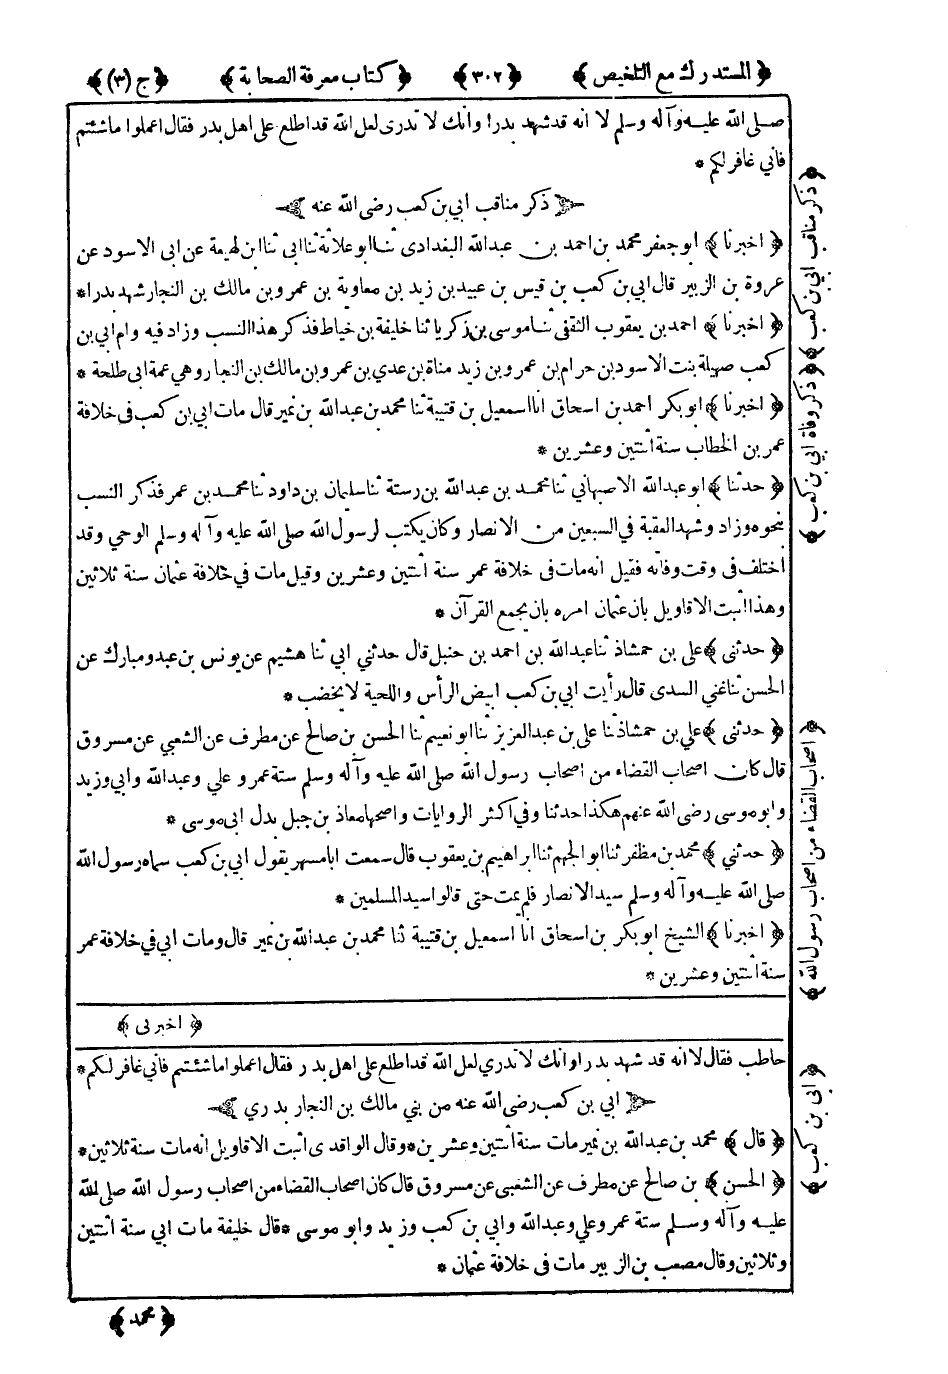 ﴿ المستدرك مع التلخيص ﴾ ﴿ ٣٠٢ ﴾ ﴿ كتاب معرفة الصحابة ﴾ ﴿ ج (٣) ﴾
صلى الله عليه وآله وسلم لا انه قد شهد بدرا وانك لا تدرى لعل الله قد اطلع على اهل بدر فقال اعملوا ما شئتم
فاني غافر لكم *
ذكر مناقب ابي بن كعب رضى الله عنه
﴿ اخبرنا ﴾ ابو جعفر محمد بن احمد بن عبدالله البغدادى ثنا ابو علاثة ثنا ابى ثنا ابن لهيعة عن ابى الاسود عن
عروة بن الزبير قال ابي بن كعب بن قيس بن عبيد بن زيد بن معاوية بن عمرو بن مالك بن النجار شهد بدرا *
﴿ اخبرنا ﴾ احمد بن يعقوب الثقفي ثنا موسى بن زكريا ثنا خليفة بن خياط فذكر هذا النسب وزاد فيه وام ابي بن
كعب صهيلة بنت الاسود بن حرام بن عمرو بن زيد مناة بن عدي بن عمرو بن مالك بن النجار وهي عمة ابى طلحة *
﴿ اخبرنا ﴾ ابو بكر احمد بن اسحاق انا اسمعيل بن قتيبة ثنا محمد بن عبدالله بن نمير قال مات ابي بن كعب فى خلافة
عمر بن الخطاب سنة اثنتين وعشرين *
﴿ حدثنا ﴾ ابو عبدالله الاصبهاني ثنا محمد بن عبدالله بن رستة ثنا سليمان بن داود ثنا محمد بن عمر فذكر النسب
نحوه وزاد وشهد العقبة في السبعين من الانصار وكان يكتب لرسول الله صلى الله عليه وآله وسلم الوحي وقد
اختلف فى وقت وفاته فقيل انه مات فى خلافة عمر سنة اثنتين وعشرين وقيل مات في خلافة عثمان سنة ثلاثين
وهذا اثبت الاقاويل بان عثمان امره بان يجمع القرآن *
﴿ حدثنى ﴾ على بن حمشاذ ثنا عبدالله بن احمد بن حنبل قال حدثني ابي ثنا هشيم عن يونس بن عبد ومبارك عن
الحسن ثنا عني السدى قال رأيت ابي بن كعب ابيض الرأس واللحية لا يخضب *
﴿ حدثنى ﴾ علي بن حمشاذ ثنا على بن عبد العزيز ثنا ابو نعيم ثنا الحسن بن صالح عن مطرف عن الشعبي عن مسروق
قال كان اصحاب القضاء من اصحاب رسول الله صلى الله عليه وآله وسلم ستة عمر و علي وعبدالله وابي وزيد
وابو موسى رضى الله عنهم هكذا حدثنا وفي اكثر الروايات واصحها معاذ بن جبل بدل ابى موسى *
﴿ حدثني ﴾ محمد بن مظفر ثنا ابو الجهم ثنا ابراهيم بن يعقوب قال سمعت ابا مسهر يقول ابي بن كعب سماه رسول الله
صلى الله عليه وآله وسلم سيد الانصار فلم يمت حتى قالوا سيد المسلمين *
﴿ اخبرنا ﴾ الشيخ ابو بكر بن اسحاق انا اسمعيل بن قتيبة ثنا محمد بن عبدالله بن نمير قال ومات ابي في خلافة عمر
سنة اثنتين وعشرين *
﴿ اخبرنى ﴾
حاطب فقال لا انه قد شهد بدرا وانك لا تدري لعل الله قد اطلع على اهل بدر فقال اعملوا ما شئتم فاني غافر لكم *
ابي بن كعب رضى الله عنه من بني مالك بن النجار بدري
﴿ قال ﴾ محمد بن عبدالله بن نمير مات سنة اثنتين وعشرين * وقال الواقدى اثبت الاقاويل انه مات سنة ثلاثين *
﴿ الحسن ﴾ بن صالح عن مطرف عن الشعبى عن مسروق قال كان اصحاب القضاء من اصحاب رسول الله صلى الله
عليه وآله وسلم ستة عمر وعلي وعبدالله وابي بن كعب وزيد وابو موسى * قال خليفة مات ابي سنة اثنتين
وثلاثين وقال مصعب بن الزبير مات فى خلافة عثمان *
﴿ محمد ﴾
﴿ ذكر مناقب ابي بن كعب ﴾
﴿ ذكر وفاة ابي بن كعب ﴾
﴿ اصحاب القضاء من اصحاب رسول الله ﴾
﴿ ابى بن كعب ﴾